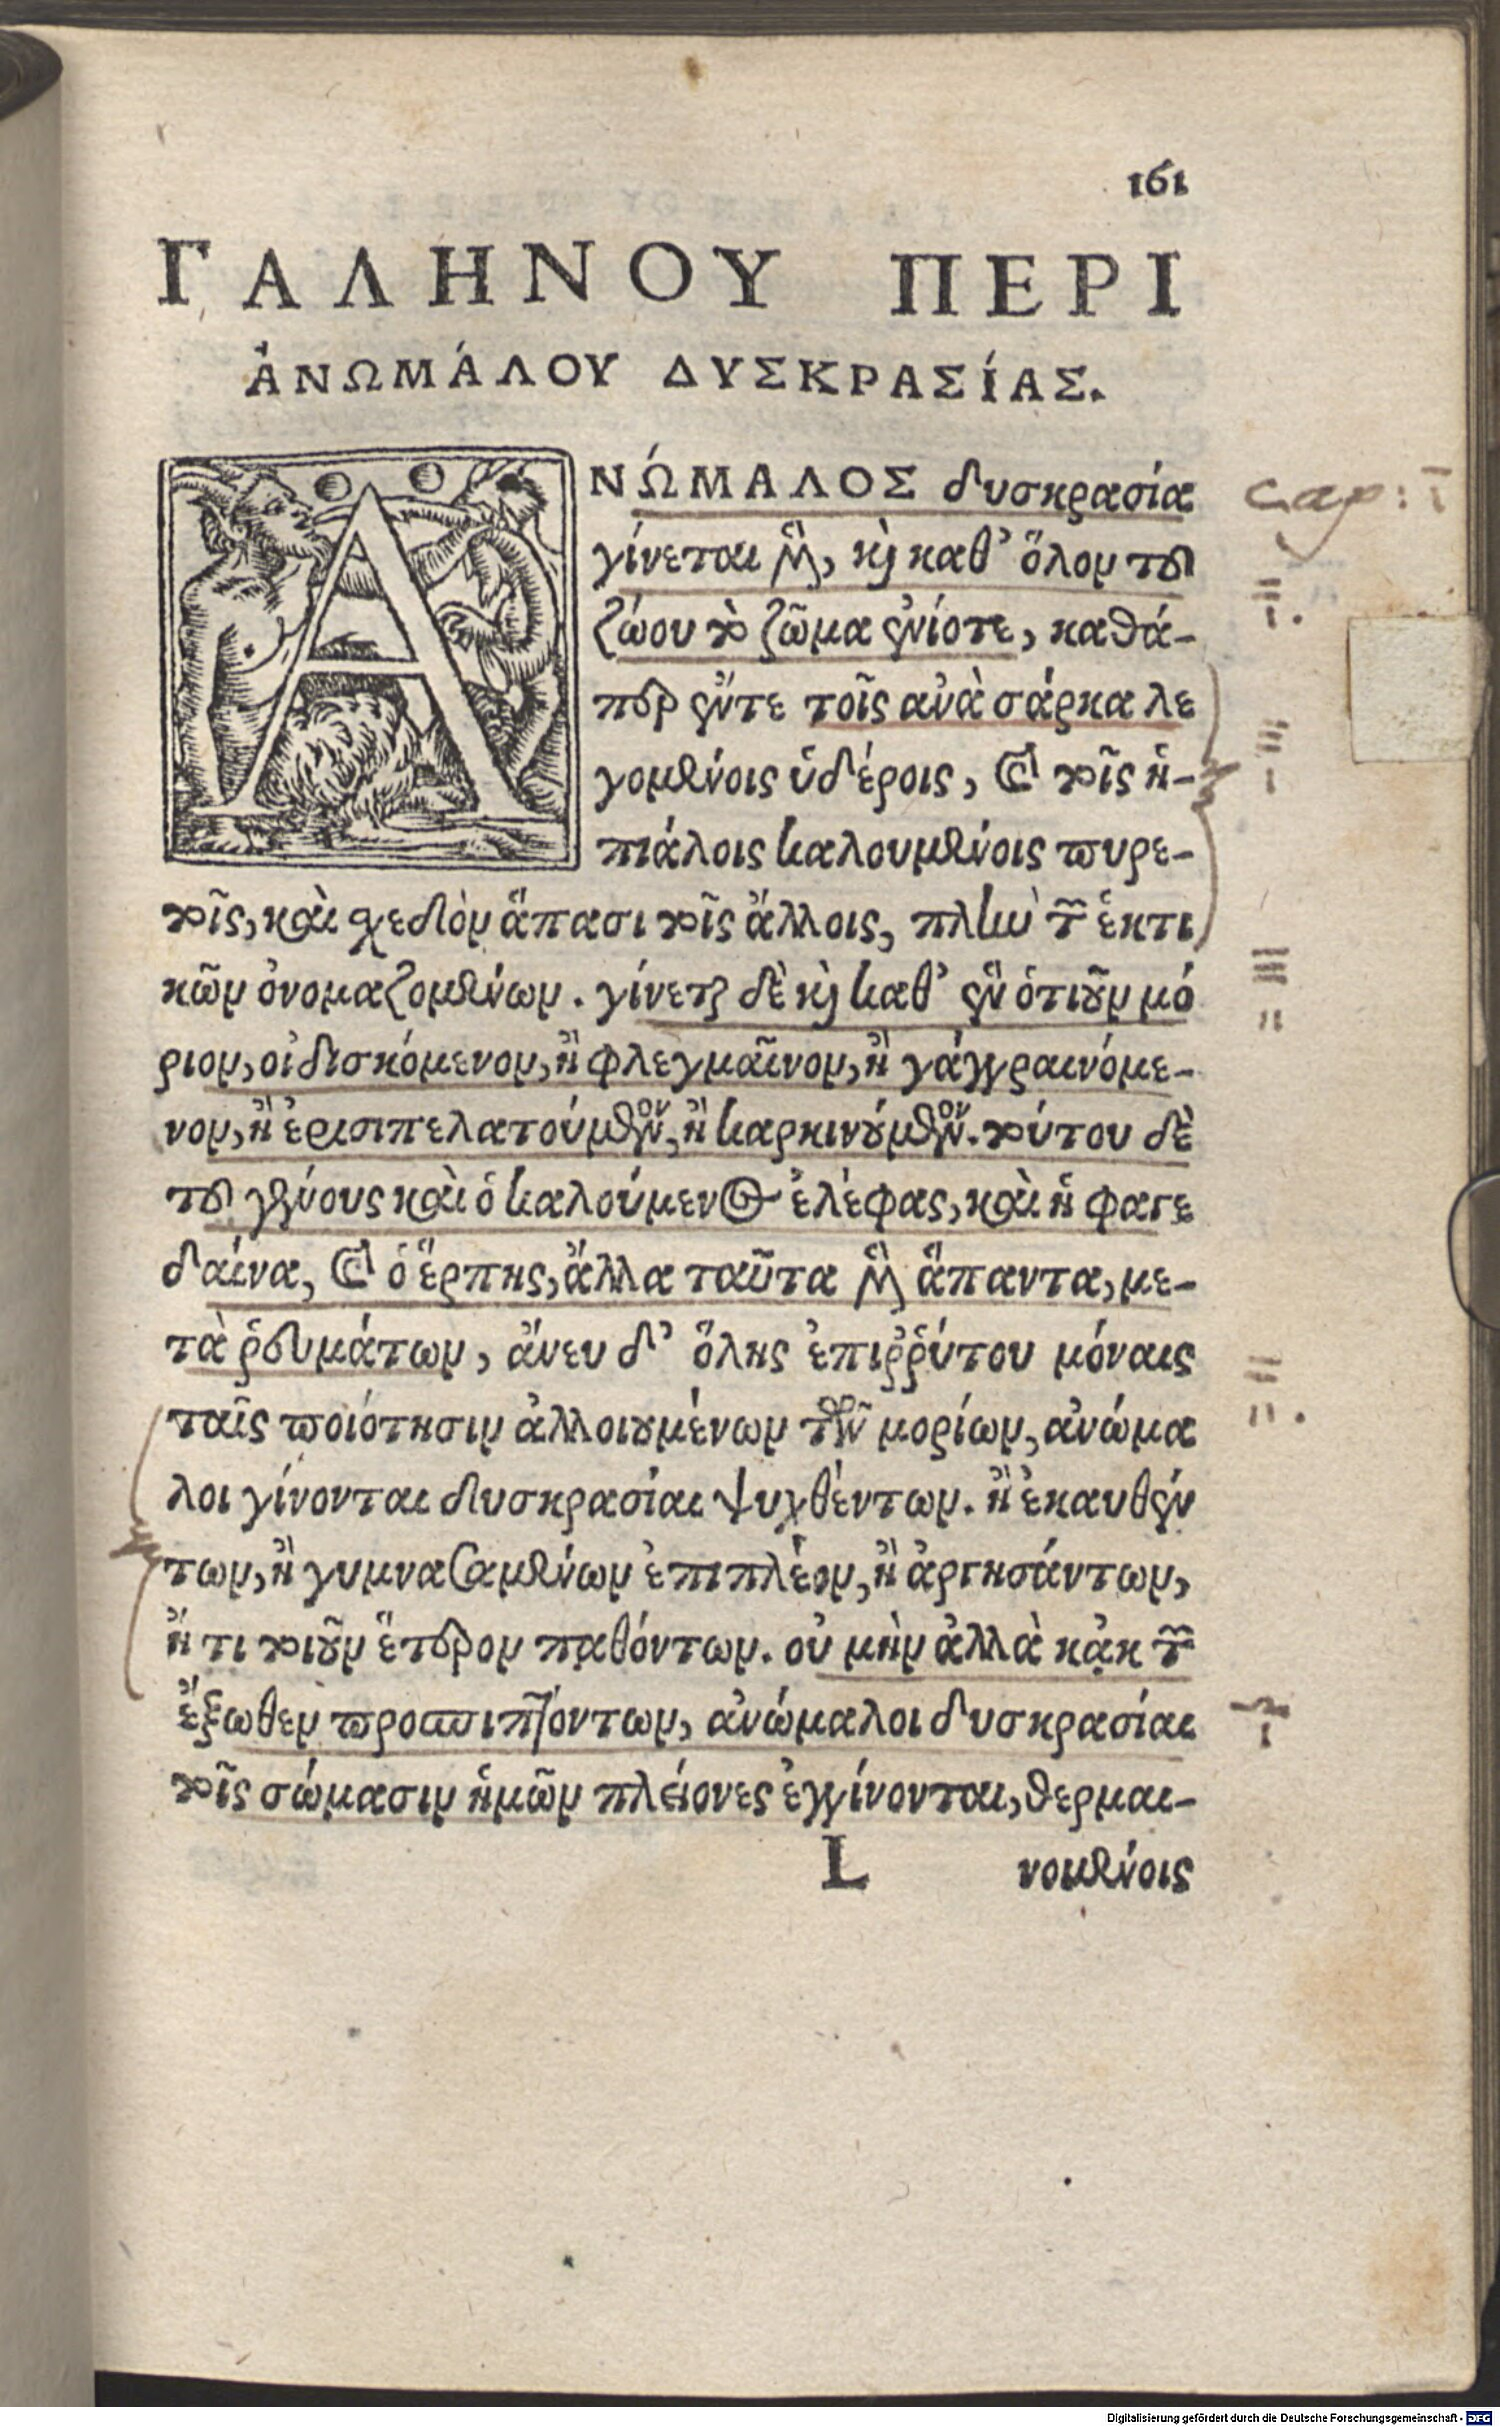 161
ΓΑΛΗΝΟΥ ΠΕΡΙ
ἈΝΩΜΆΛΟΥ ΔΥΣΚΡΑΣΊΑΣ.
ΑΝΏΜΑΛΟΣ δυσκρασία
γίνεται μὲν, κὶ καθ᾽ ὅλον τοῦ
ζώου τὸ ζῶμα ἐνίοτε, καθά-
περ ἔντε τοῖς ἀνὰ σάρκα λε
γομένοις ὑδέροις, καὶ τοῖς ἠ-
πιάλοις καλουμένοις πυρε-
τοῖς, καὶ χεδὸν ἅπασι τοῖς ἄλλοις, πλὴν τῶν ἑκτι
κῶν ὀνομαζομένων. γίνεται δὲ κὶ καθ᾽ ἓν ὁτιοῦν μό
ριον, οἰδισκόμενον, ἢ φλεγμαῖνον, ἢ γάγγραινόμε-
νον, ἢ ἐρισιπελατούμενον, ἢ καρκινούμενον. τούτου δὲ
τοῦ γένους καὶ ὁ καλούμενος ἐλέφας, καὶ ἡ φαγε
δαίνα, καὶ ὁ ἕρπης, ἄλλα ταῦτα μὲν ἅπαντα, με-
τὰ ῥευμάτων, ἄνευ δ᾽ ὅλης ἐπιῤῥύτου μόναις
ταῖς ποιότησιν ἀλλοιουμένων τῶν μορίων, ἀνώμα
λοι γίνονται δυσκρασίαι ψυχθέντων. ἢ ἐκαυθέν
των, ἢ γυμνασαμένων ἐπιπλέον, ἢ ἀργησάντων,
ἤ τι τοιοῦν ἕτερον παθόντων. οὐ μὴν ἀλλὰ κἀκ τῶν
ἔξωθεν προσπιπτόντων, ἀνώμαλοι δυσκρασίαι
τοῖς σώμασιν ἡμῶν πλείονες ἐγγίνονται, θερμαι-
L νομένοις
cap: I
Digitalisierung gefördert durch die Deutsche Forschungsgemeinschaft - DFG